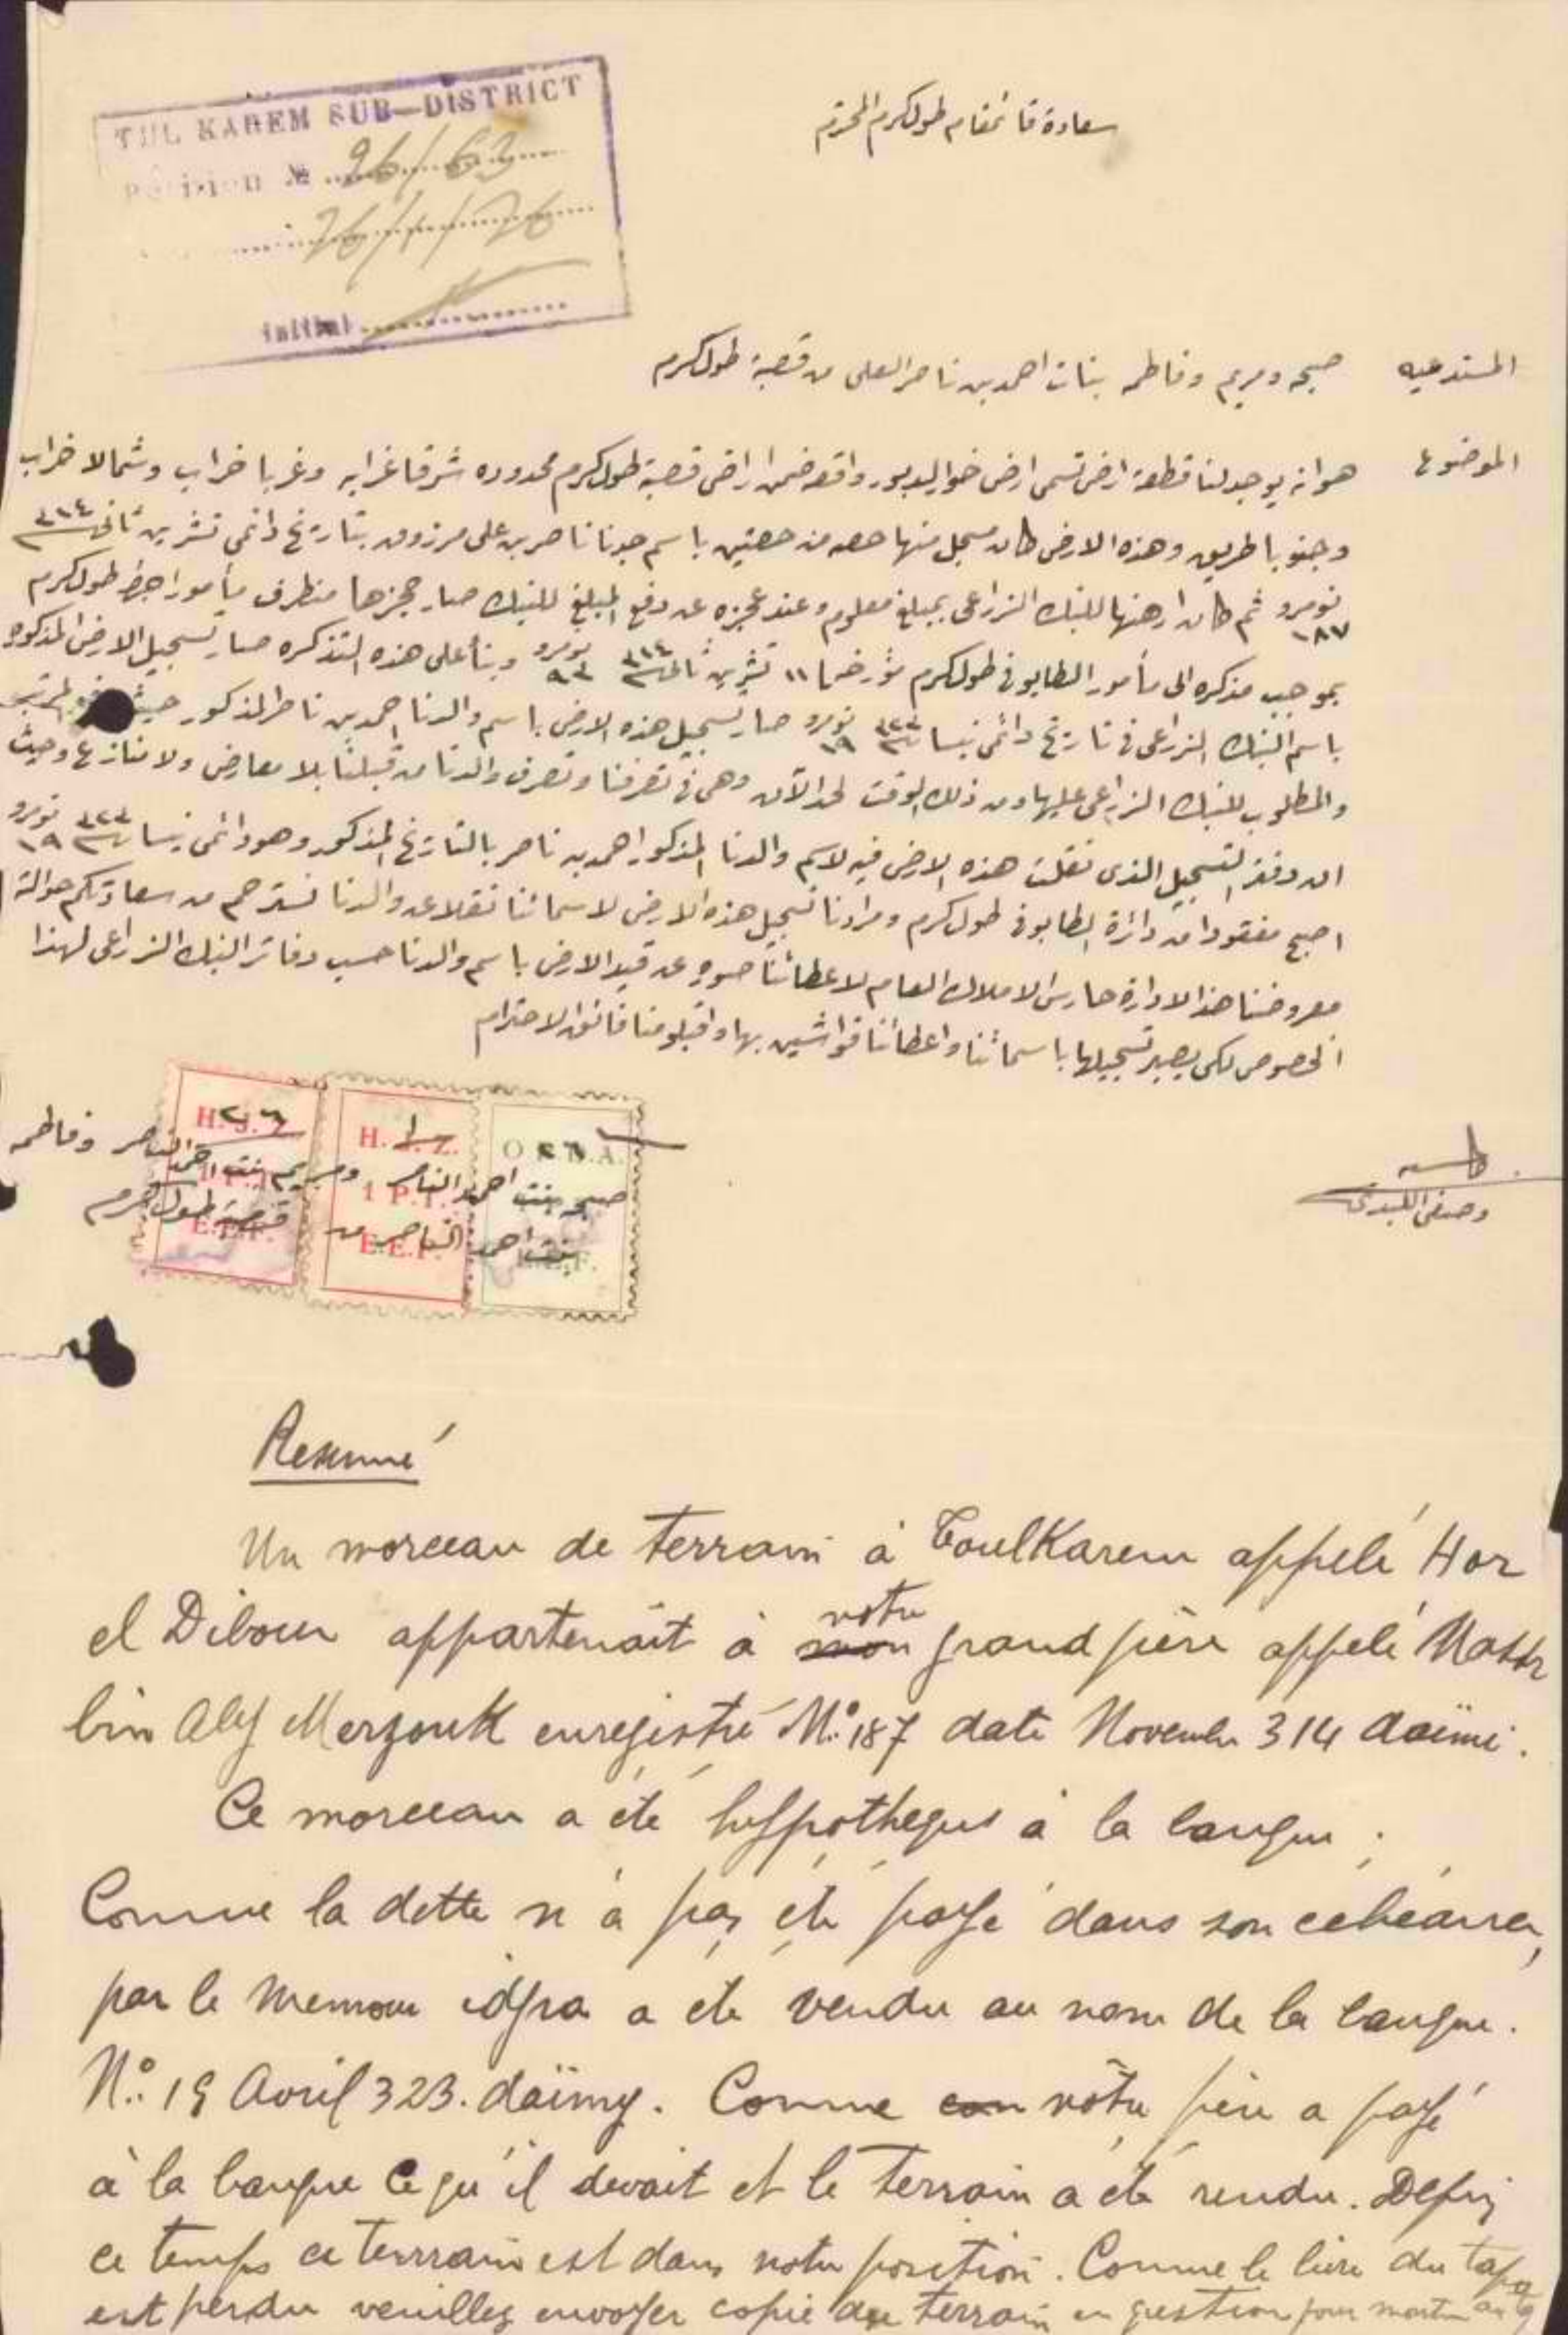 TUL KAREM SUB-DISTRICT
Petition № 26/63
26/1/26
initial
سعادة قائمقام طولكرم المحترم
المستدعيه صبحه ومريم وفاطمه بنات احمد بن ناصر العلي من قصبة طولكرم
الموضوع هو انه يوجد لنا قطعة ارض تسمى ارض خور الدبور واقعه ضمن اراضي قصبة طولكرم محدوده شرقا غرابه وغربا خراب وشمالا خراب
وجنوبا طريق وهذه الارض كان مسجل منها حصه من حصتين باسم جدنا ناصر بن علي مرزوق بتاريخ دائمي تشرين ثاني ٣١٤
نومرو ١٨٧ ثم كان ارهنها للبنك الزراعي بمبلغ معلوم وعند عجزه عن دفع المبلغ للبنك صار حجزها من طرف مأمور اجرا طولكرم
بموجب مذكره الى مأمور الطابو في طولكرم مؤرخه ١١ تشرين ثاني ٣١٤ نومرو وبنأ على هذه التذكره صار تسجيل الارض المذكوره
باسم البنك الزراعي في تاريخ دائمي نيسان ٣٢٣ نومرو ١٩ صار تسجيل هذه الارض باسم والدنا احمد بن ناصر المذكور حيث
والمطلوب للبنك الزراعي عليها ومن ذلك الوقت لحد الآن وهي في تصرفنا وتصرف والدنا من قبلنا بلا معارض ولا منازع وحيث
ان دفتر التسجيل الذي نقلت هذه الارض فيه لاسم والدنا المذكور احمد بن ناصر بالتاريخ المذكور وهو دائمي نيسان ٣٢٣ نومرو ١٩
اصبح مفقودا من دائرة الطابو في طولكرم ومرادنا تسجيل هذه الارض لاسمائنا نقلا عن والدنا نسترحم من سعادتكم حوالة
معروضنا هذا لادارة حارس الاملاك العام لاعطائنا صوره عن قيد الارض باسم والدنا حسب دفاتر البنك الزراعي لهذا
الخصوص لكي يصير تسجيلها باسمائنا واعطائنا قواشين بها واقبلو منا فائق الاحترام
صبحه بنت احمد الناصر ومريم بنت احمد الناصر وفاطمه
بنت احمد الناصر من قصبة طولكرم
H.J.Z.
1 P.T.
E.E.F.
O.P.D.A.
وصفي اللبدي
Resumé
Un morceau de terrain à Toulkarem appelé Hor
el Dibour appartenait à notre grand père appelé Nassr
bin Aly Merzouk enregistré No: 187 date Novembre 314 daïmi.
Ce morceau a été hyppothequé à la banque;
Comme la dette n'a pas été payé dans son echéance,
par le Memour idjra a été vendu au nom de la banque.
No: 19 Avril 323. daïmy. Comme notre père a payé
à la banque ce qu'il devait et le terrain a été rendu. Depuis
ce temps ce terrrain est dans notre position. Comme le livre du tapo
est perdu veuillez envoyer copie du terrain en question pour